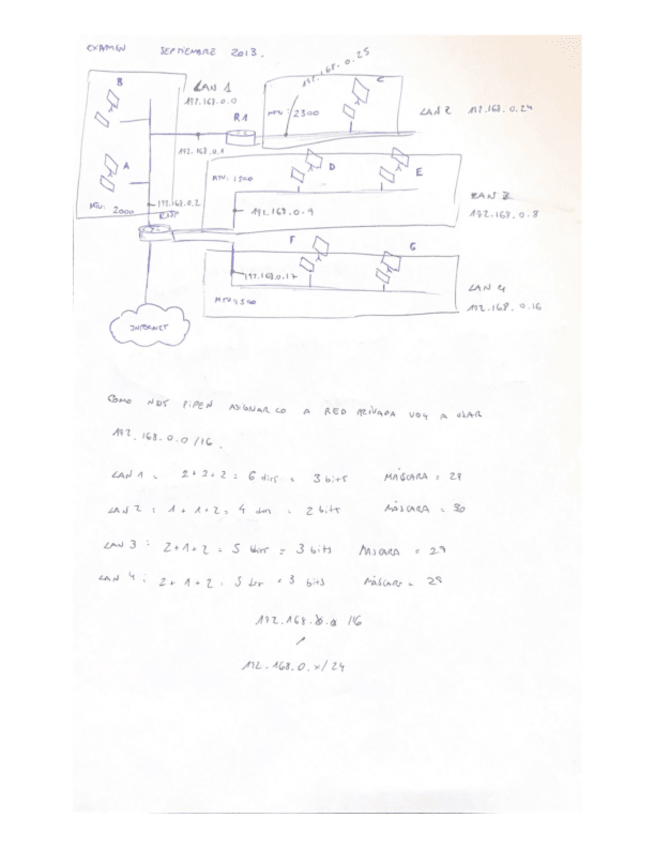 EXAMEN SEPTIEMBRE 2013.
B
LAN 1
192.168.0.0
192.168.0.25
C
MTU: 2300
LAN 2 192.168.0.24
R1
192.168.0.1
A
MTU: 2000
192.168.0.2
MTU: 1500
D
E
192.168.0.9
LAN 3
192.168.0.8
F
G
192.168.0.17
MTU: 1500
LAN 4
192.168.0.16
INTERNET
COMO NOS PIDEN ASIGNARLO A RED PRIVADA VOY A USAR
192.168.0.0/16.
LAN 1: 2+2+2 = 6 dirs = 3 bits MÁSCARA = 29
LAN 2: 1+1+2 = 4 dir = 2 bits MÁSCARA = 30
LAN 3: 2+1+2 = 5 dirs = 3 bits MÁSCARA = 29
LAN 4: 2+1+2 = 5 dir = 3 bits MÁSCARA = 29
192.168.0.0 /16
192.168.0.x/24